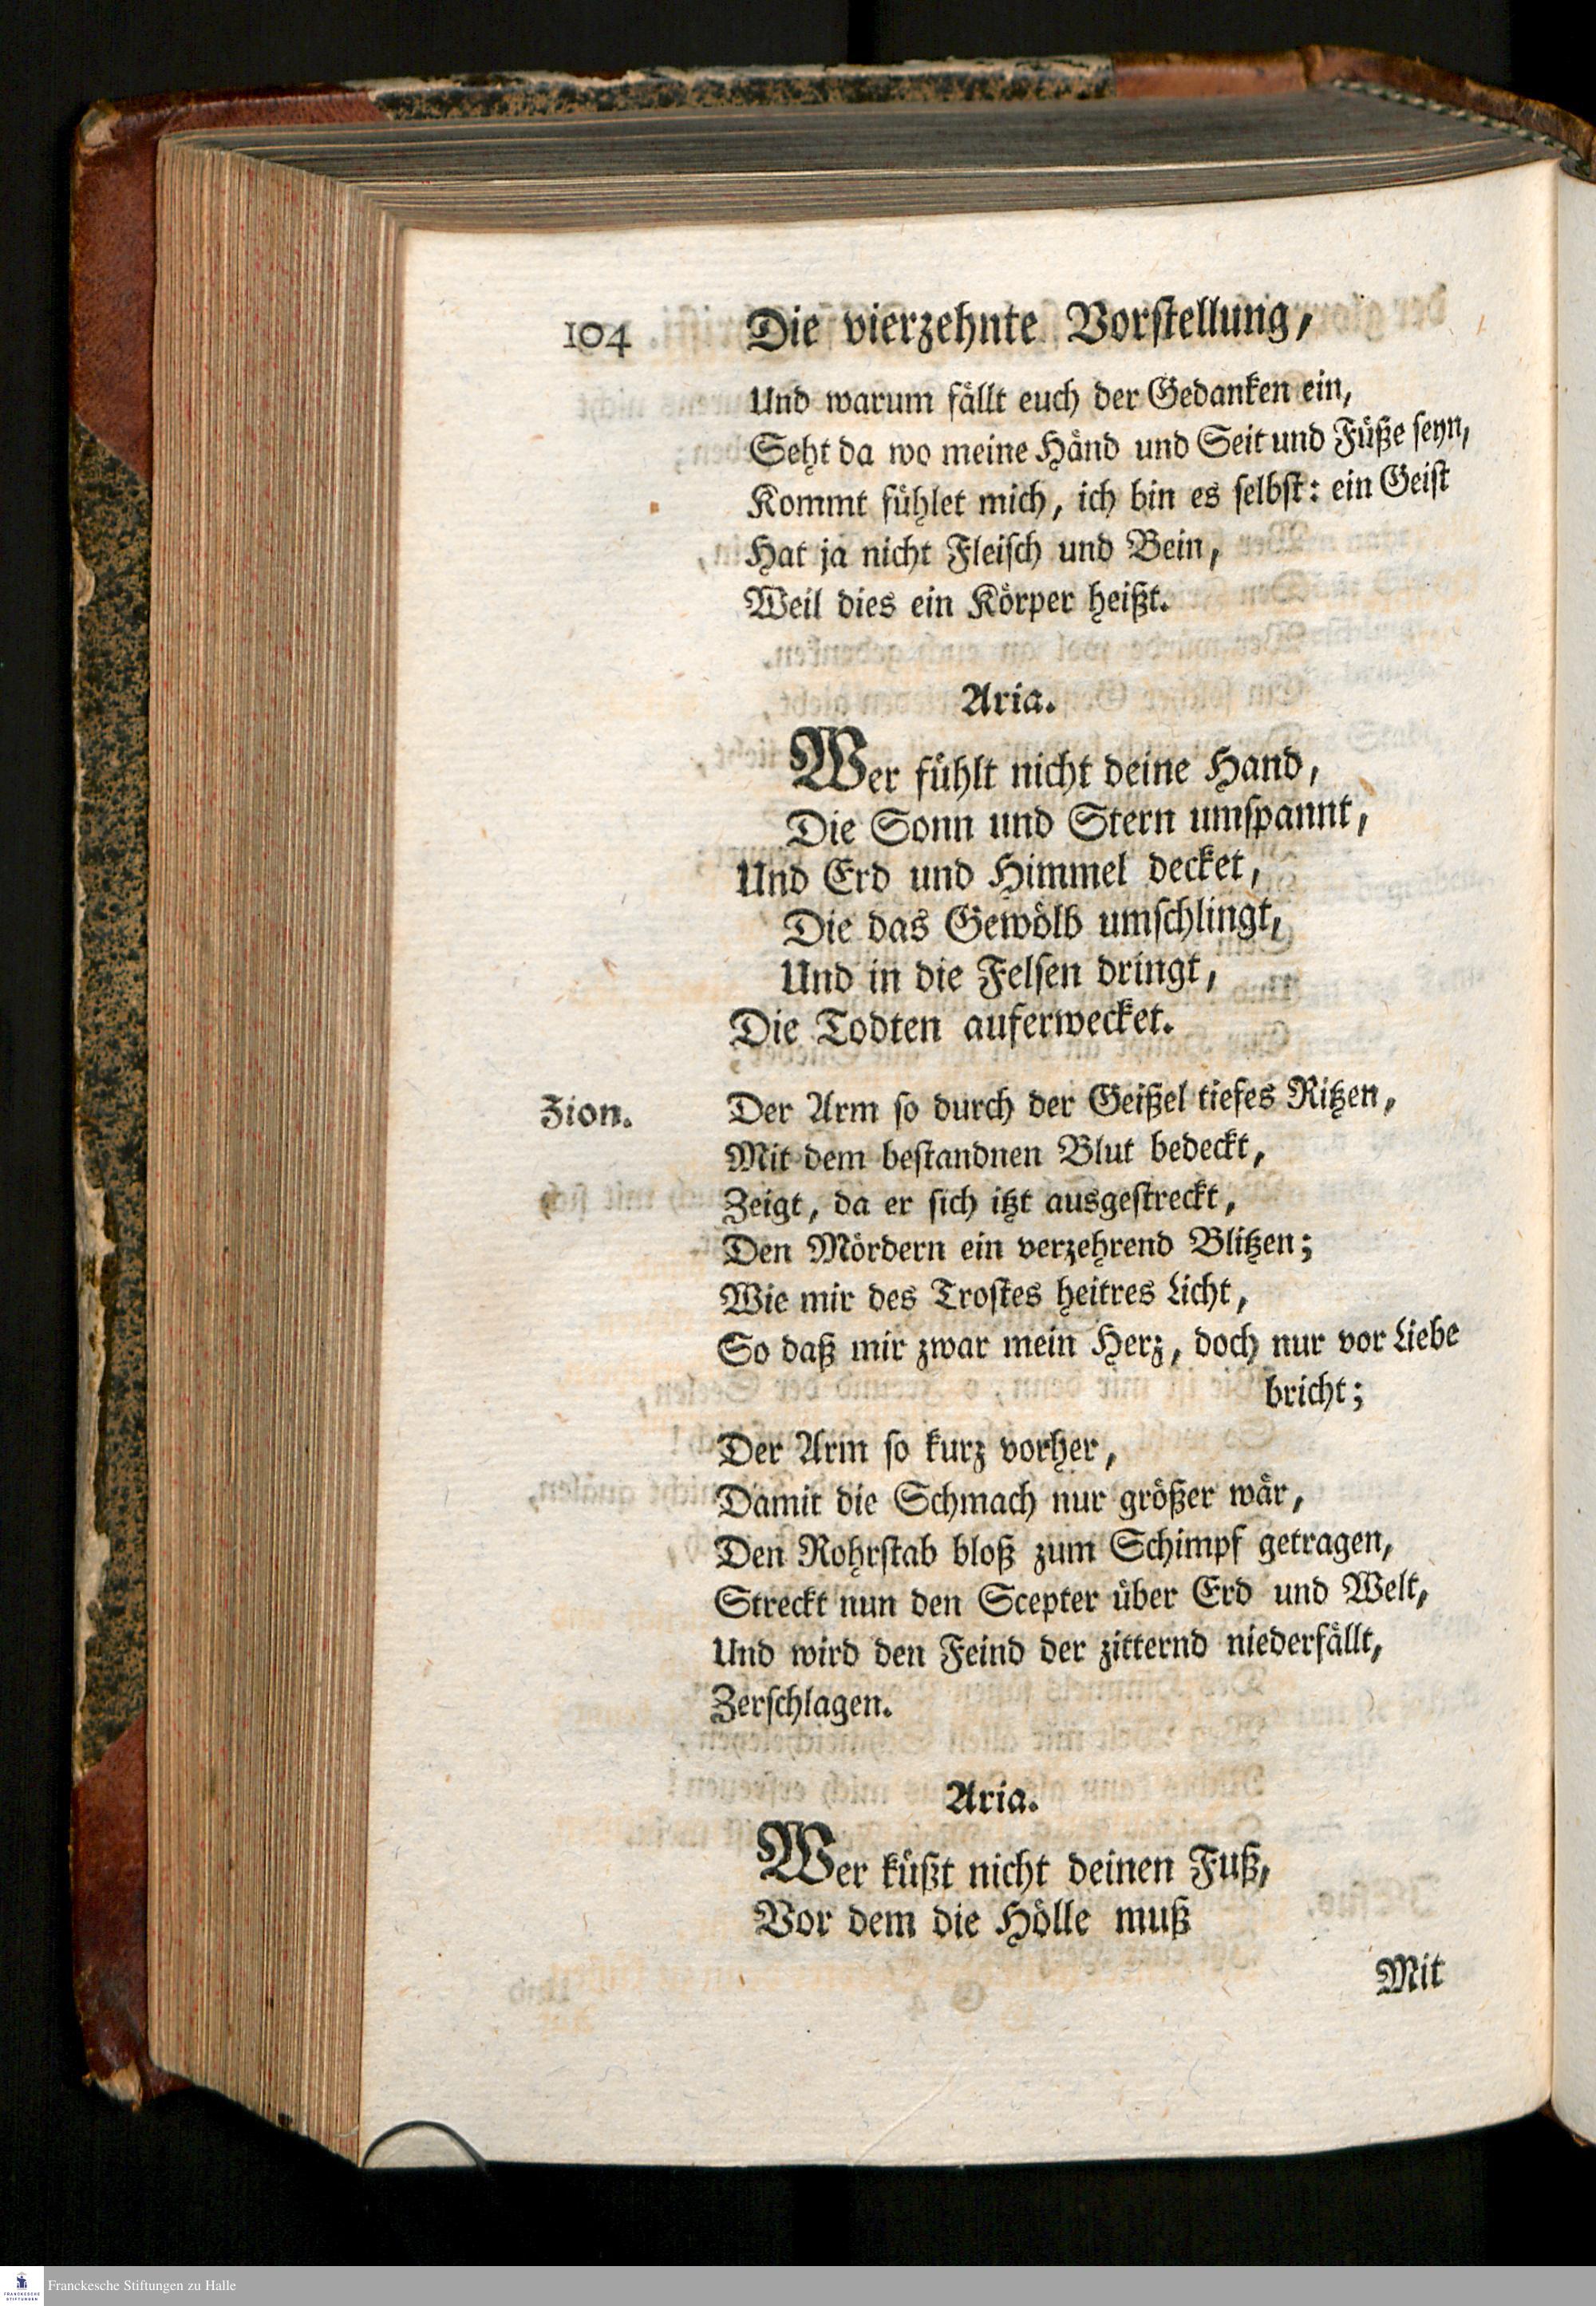 104 Die vierzehnte Vorſtellung,
Und warum fållt euch der Gedanken ein,
Seht da wo meine Hånd und Seit und Fůße ſeyn,
Kommt fůhlet mich, ich bin es ſelbſt: ein Geiſt
Hat ja nicht Fleiſch und Bein,
Weil dies ein Kôrper heißt.
Aria.
Wer fůhlt nicht deine Hand,
Die Sonn und Stern umſpannt,
Und Erd und Himmel decket,
Die das Gewôlb umſchlingt,
Und in die Felſen dringt,
Die Todten auferwecket.
Zion. Der Arm ſo durch der Geißel tiefes Ritzen,
Mit dem beſtandnen Blut bedeckt,
Zeigt, da er ſich itzt ausgeſtreckt,
Den Môrdern ein verzehrend Blitzen;
Wie mir des Troſtes heitres Licht,
So daß mir zwar mein Herz, doch nur vor Liebe
bricht;
Der Arm ſo kurz vorher,
Damit die Schmach nur grôßer wår,
Den Rohrſtab bloß zum Schimpf getragen,
Streckt nun den Scepter ůber Erd und Welt,
Und wird den Feind der zitternd niederfållt,
Zerſchlagen.
Aria.
Wer kůßt nicht deinen Fuß,
Vor dem die Hôlle muß
Mit
FRANCKESCHE
STIFTUNGEN
Franckesche Stiftungen zu Halle